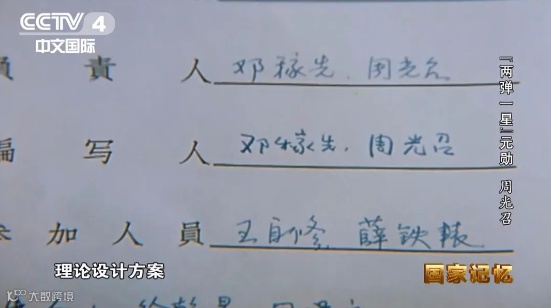 CCTV 4
中文国际
負 責 人 邓稼先、周光召
编 写 人 邓稼先、周光召
参 加 人 員 王自修 薛铁辕
「两弹一星」元勋 周光召
理论设计方案
国家记忆
大数跨境